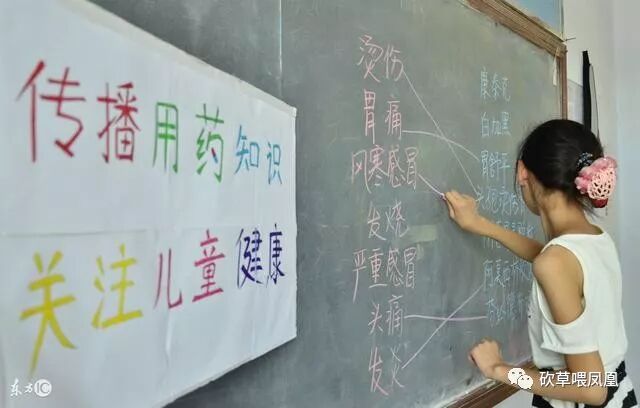 传播用药知识
关注儿童健康
烫伤
胃痛
风寒感冒
发烧
严重感冒
头痛
发炎
康泰克
白加黑
东方IC
砍草喂凤凰